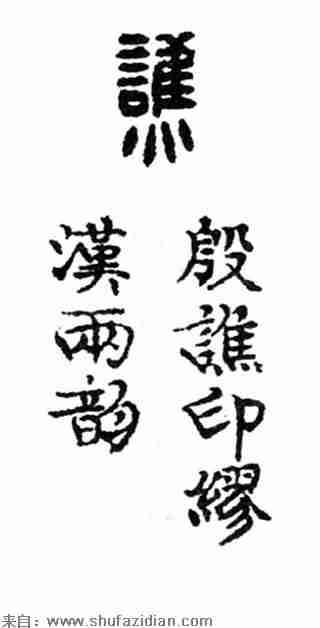 譙
殷譙印繆
漢兩韵
来自：www.shufazidian.com